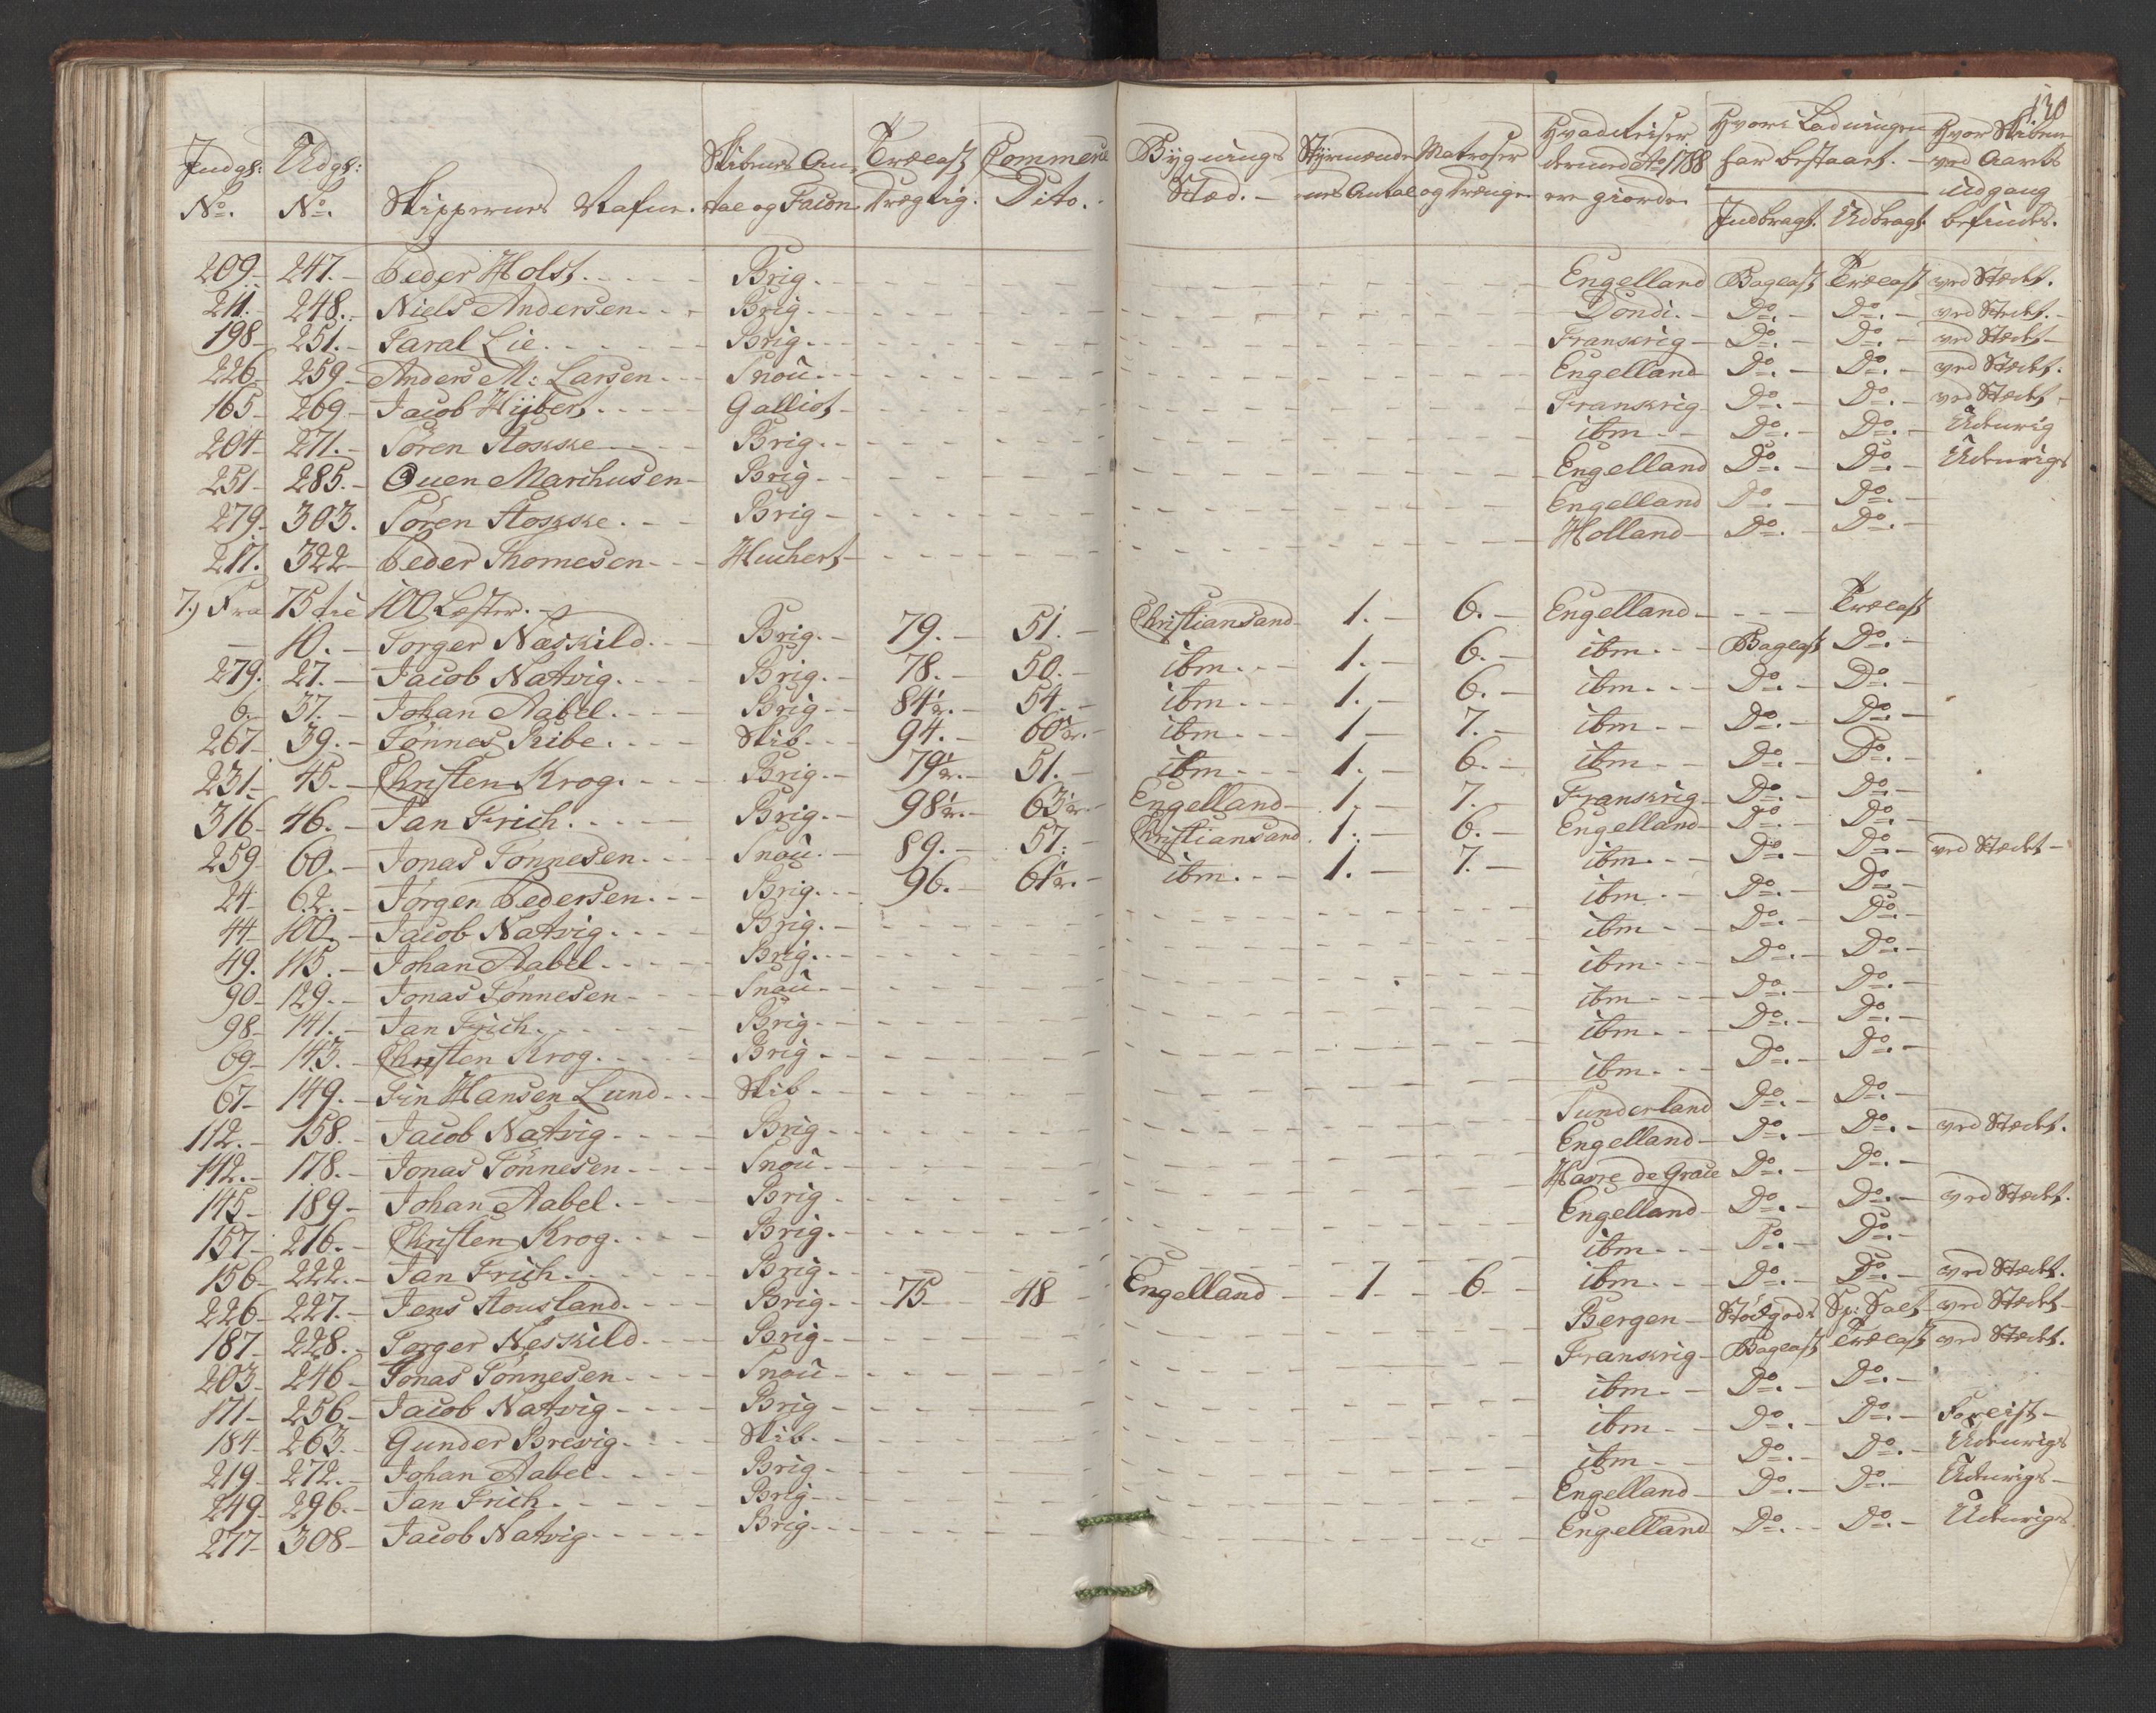 130
Indg: No. | Udg: No. | Skippernes Nafne. | Skibenes Antal og Facon. | Trælast Drægtig. | Commerce Dito. | Bygnings Stæd. | Styrmændenes Antal | Matroser og Drænge | Hvad Reiser dermed Ao 1788 ere giorde | Hvori Ladningen har bestaaet. Indbragt. Udbragt. | Hvor Skibene ved Aarets Udgang befindes.
209 - 247. - Peder Holst - Brig. - Engelland - Baglast - Trælast - ved Stædet.
211. - 248. - Niels Andersen - Brig - Dondi. - Do. - Do. - ved Stedet. -
198 - 251. - Taral Lie - Brig - Franskrig - Do. - Do. - ved Stædet -
226 - 259 - Anders M: Larsen - Snou - Engelland - Do. - Do. - ved Stædet.
165 - 269 - Jacob Hybert - Galliot - Franskrig - Do. - Do. - ved Stædet -
204 - 271. - Sören Stokke - Brig. - ibm - Do. - Do. - Udenrig
251 - 285. - Ouen Marchusen - Brig - Engelland - Do. - Do. - Udenrigs
279. - 303. Sören Stokke. - Brig - Engelland - Do. - Do. -
217. 322 - Peder Thomesen - Huckert - Holland - Do. - Do. -
7.) Fra 75 til 100 Læster. -
- 10. - Torger Næskild. - Brig. - 79. - 51. - Christiansand - 1. - 6. - Engelland - Trælast
279. 27. - Jacob Natvig. - Brig. - 78. - 50. - ibm - 1. - 6. - ibm - Baglast - Do. -
6. - 37. - Johan Aabel. - Brig - 84½. - 54. - ibm - 1. - 6. - ibm - Do. - Do. -
267 - 39. - Tönnes Ribe. - Skib. - 94. - 60½. - ibm - 1 - 7. - ibm - Do. - Do. -
231 - 45. - Christen Krog. - Brig. - 79½. - 51. - ibm - 1. - 6. - ibm - Do. - Do. -
316 - 46. - Jan Frich. - Brig. - 98½. - 63½. - Engelland - 1. - 7. - Franskrig - Do. - Do. -
259 - 60. - Jonas Tönnesen. - Snou. - 89. - 57. - Christiansand. 1. - 6. - Engelland - Do. - Do. -
24 - 62. - Jörgen Pedersen. - Brig. - 96. - 61½. - ibm - 1. - 7. - ibm - Do. - Do. - ved Stædet -
44 - 100. - Jacob Natvig. - Brig. - ibm - Do. - Do. -
49. 115. - Johan Aabel. - Brig. - ibm - Do. - Do. -
90 - 129. - Jonas Tönnesen - Snou. - ibm - Do. - Do. -
98 - 141. - Jan Frich. - Brig. - ibm - Do. - Do. -
69 - 143. - Christen Krog. - Brig. - ibm - Do. - Do. -
67 - 149. - Fin Hansen Lund - Skib. - ibm - Do. - Do. -
112. - 158. - Jacob Natvig - Brig - Sunderland - Do. - Do. -
142. - 178. - Jonas Tönnesen - Snou - Engelland - Do. - Do. - ved Stædet.
145 - 189 - Johan Aabel. - Brig - Havre de Grace - Do. - Do. -
157 - 216. - Christen Krog. - Brig. - Engelland - Do. - Do. - ved Stædet.
156 - 222. - Jan Frich. - Brig - ibm - Do. - Do. -
226 - 227. - Jens Stousland. - Brig - 75 - 48 - Engelland - 1 - 6 - ibm - Do. - Do. - ved Stædet.
187 - 228. - Torger Neskild - Brig - Bergen - Stökgods - Sp: Salt - ved Stædet -
203 - 246 - Jonas Tönnesen - Snou - Franskrig - Baglast - Trælast - ved Stædet.
171 - 256 - Jacob Natvig - Brig - ibm - Do. - Do. -
184 - 263. - Gunder Brevig. - Skib. - ibm - Do. - Do. - Forlist -
219 - 272. - Johan Aabel - Brig - ibm - Do. - Do. - Udenrigs
249 - 296. - Jan Frich. - Brig - Engelland - Do. - Do. - Udenrigs -
277 - 308 - Jacob Natvig - Brig - Engelland - Do. - Do. - Udenrigs